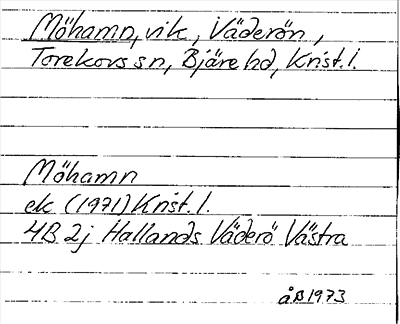 Möhamn, vik, Väderön,
Torekovs sn, Bjäre hd, Krist. l.
Möhamn
ek (1971) Krist. l.
4B 2j Hallands Väderö Västra
åB 1973